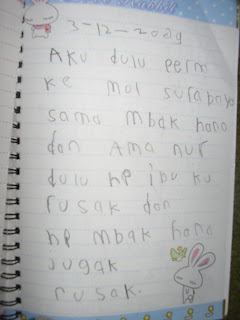 3-12-2029
Aku dulu perni
ke mol surabaya
sama mbak hana
dan Ama nur
dulu hp ibu ku
rusak dan
hp mbak hana
jugak
rusak.